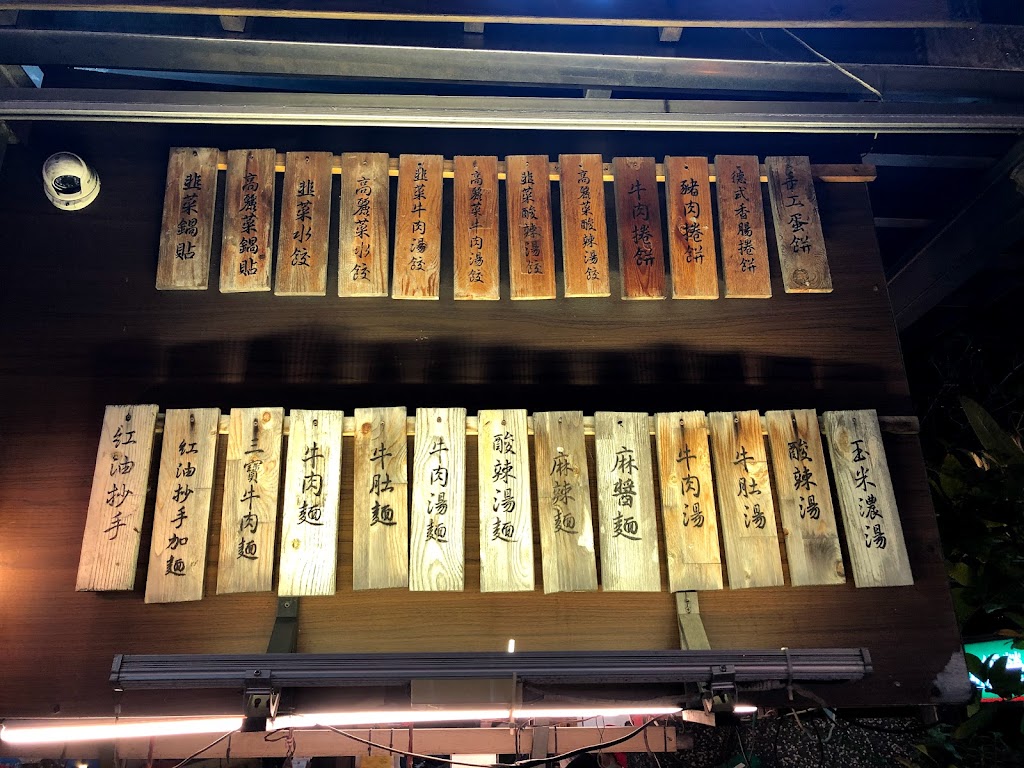 韭菜鍋貼
高麗菜鍋貼
韭菜水餃
高麗菜水餃
韭菜牛肉湯餃
高麗菜牛肉湯餃
韭菜酸辣湯餃
高麗菜酸辣湯餃
牛肉捲餅
豬肉捲餅
德式香腸捲餅
手工蛋餅
紅油抄手
紅油抄手加麵
三寶牛肉麵
牛肉麵
牛肚麵
牛肉湯麵
酸辣湯麵
麻辣麵
麻醬麵
牛肉湯
牛肚湯
酸辣湯
玉米濃湯